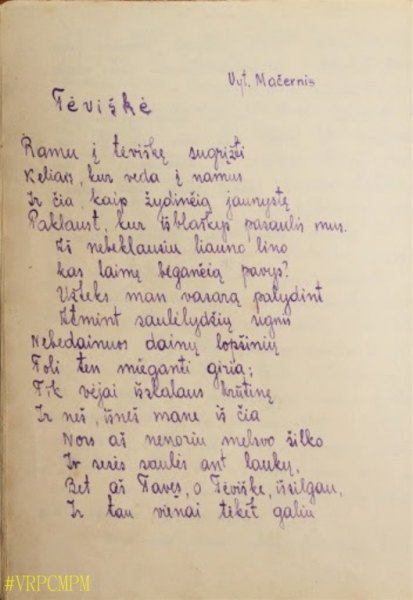 Vyt. Mačernis
Tėviškė
Ramu į tėviškę sugrįžti
Keliais, kur veda į namus
Ir čia, kaip žydinčią jaunystę
Paklaust, kur išblaškys pasaulis mus.
Iš nebeklausiu liauno lino
kas laimę bėgančią pavys?
Užteks man vasarą palydint
Atmint saulėlydžių ugnis
Nebedainuos dainų lopšinių
Toli ten mieganti giria;
Tik vėjai išskalaus krūtinę
Ir neš, išneš mane iš čia
Nors aš nenoriu melsvo šilko
Ir rasos saulės ant laukų,
Bet aš Tavęs, o Tėviške, išsilgau,
Ir tau vienai tikėt galiu
#VRPCMPM